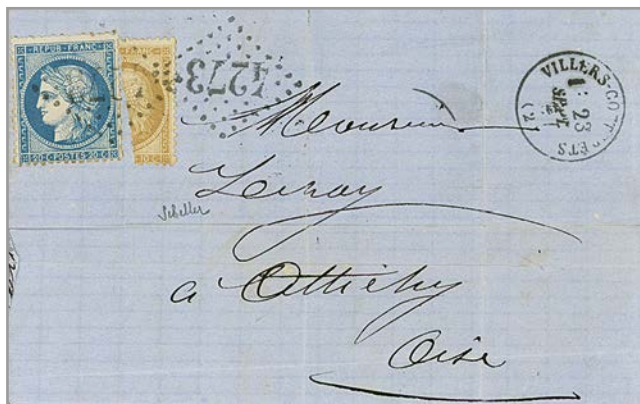 REPUB · FRANC ·
20 · C · POSTES · 20 · C
10 · C
4273
VILLERS-COTTERETS
23
SEPT
(2)
Monsieur
Leroy
Scheller
à Attichy
Oise